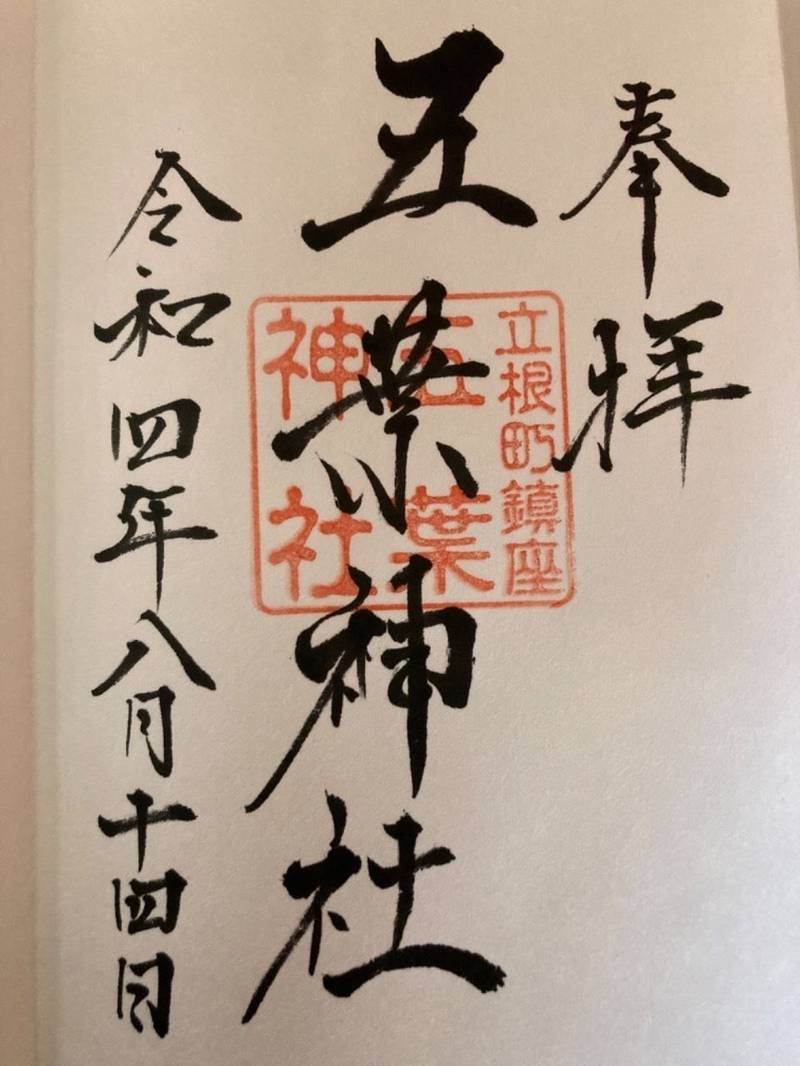 奉拝
立根町鎮座
五葉
神社
五葉神社
令和四年八月十四日